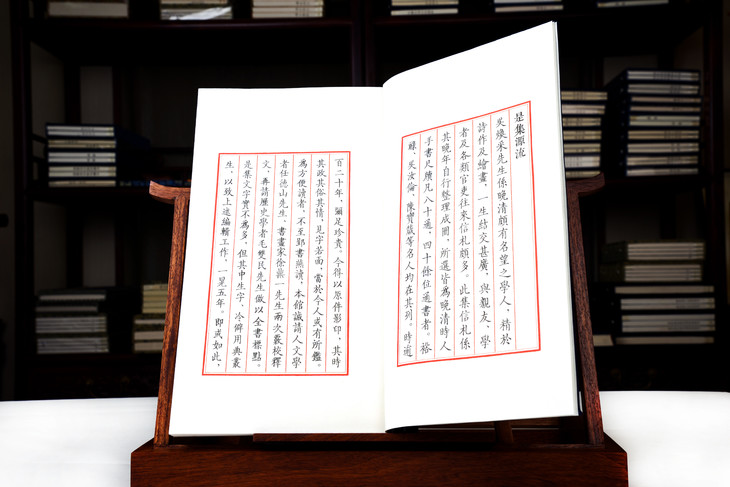 是集源流
吳煥采先生係晚清頗有名望之學人，精於
詩作及繪畫，一生結交甚廣，與親友、學
者及各類官吏往來信札頗多。此集信札係
其晚年自行整理成冊，所選皆為晚清時人
手書尺牘凡八十通，四十餘位通書者。裕
祿、吳汝倫、陳寶箴等名人均在其列。時逾
百二十年，彌足珍貴。今得以原件影印，其時
其政其俗其情，見字若面，當於今人或有所鑑。
為方便讀者，不至郢書燕讀，本館誠請人文學
者任德山先生、書畫家徐一先生兩次嚴校釋
文，再請歷史學者毛雙民先生做以全書標點。
是集文字實不為多，但其中生字、冷僻用典叢
生，以致上述編輯工作，一晃五年。即或如此，